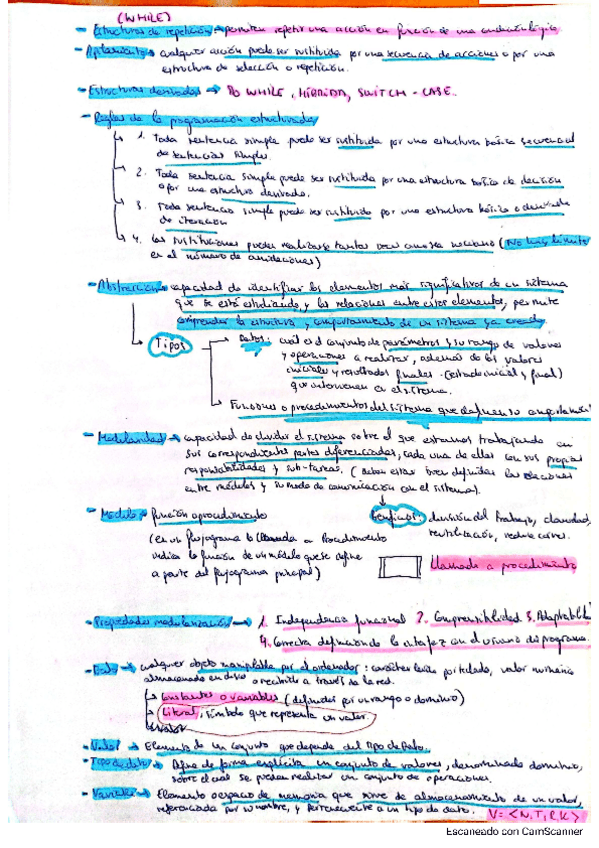 (WHILE)
- Estructuras de repetición → permiten repetir una acción en función de una condición lógica
- Apilamiento → cualquier acción puede ser sustituida por una secuencia de acciones o por una
estructura de selección o repetición.
- Estructuras derivadas → DO WHILE, HÍBRIDA, SWITCH-CASE.
- Reglas de la programación estructurada
1. Toda sentencia simple puede ser sustituida por una estructura básica secuencial
de sentencias simples.
2. Toda sentencia simple puede ser sustituida por una estructura básica de decisión
o por una estructura derivada.
3. Toda sentencia simple puede ser sustituida por una estructura básica o derivada
de iteración
4. Las sustituciones pueden realizarse tantas veces como sea necesario (No hay límite
en el número de anidaciones)
- Abstracción → capacidad de identificar los elementos más significativos de un sistema
que se está estudiando, y las relaciones entre estos elementos, permite
comprender la estructura y comportamiento de un sistema ya creado
Tipos
Datos: cuál es el conjunto de parámetros y su rango de valores
y operaciones a realizar, además de los valores
iniciales y resultados finales (estado inicial y final)
que intervienen en el sistema.
Funciones o procedimientos del sistema que definen su comportamiento
- Modularidad → capacidad de dividir el sistema sobre el que estamos trabajando en
sus correspondientes partes diferenciadas, cada una de ellas con sus propias
responsabilidades y sub-tareas. (Deben estar bien definidas las relaciones
entre módulos y su modo de comunicación con el sistema).
- Módulo → función o procedimiento
(en un flujograma la llamada a Procedimiento
indica la función de un módulo que se define
a parte del flujograma principal)
Beneficios: división del trabajo, claridad,
reutilización,
Llamada a procedimiento
- Propiedades modularización → 1. Independencia funcional 2. Comprensibilidad 3. Adaptabilidad
4. Correcta definición de la interfaz con el usuario del programa.
- Dato → cualquier objeto manipulable por el ordenador: carácter leído por teclado, valor numérico
almacenado en disco o recibido a través de la red.
→ Constantes o variables (definidas por un rango o dominio)
→ Literal: símbolo que representa un valor.
→ Valor
- Valor → Elemento de un conjunto que depende del Tipo de Dato.
- Tipo de dato → Define de forma explícita un conjunto de valores, denominado dominio,
sobre el cual se pueden realizar un conjunto de operaciones.
- Variable → Elemento o espacio de memoria que sirve de almacenamiento de un valor,
referenciada por su nombre, y perteneciente a un tipo de dato. V = <N, T, R, K>
Escaneado con CamScanner